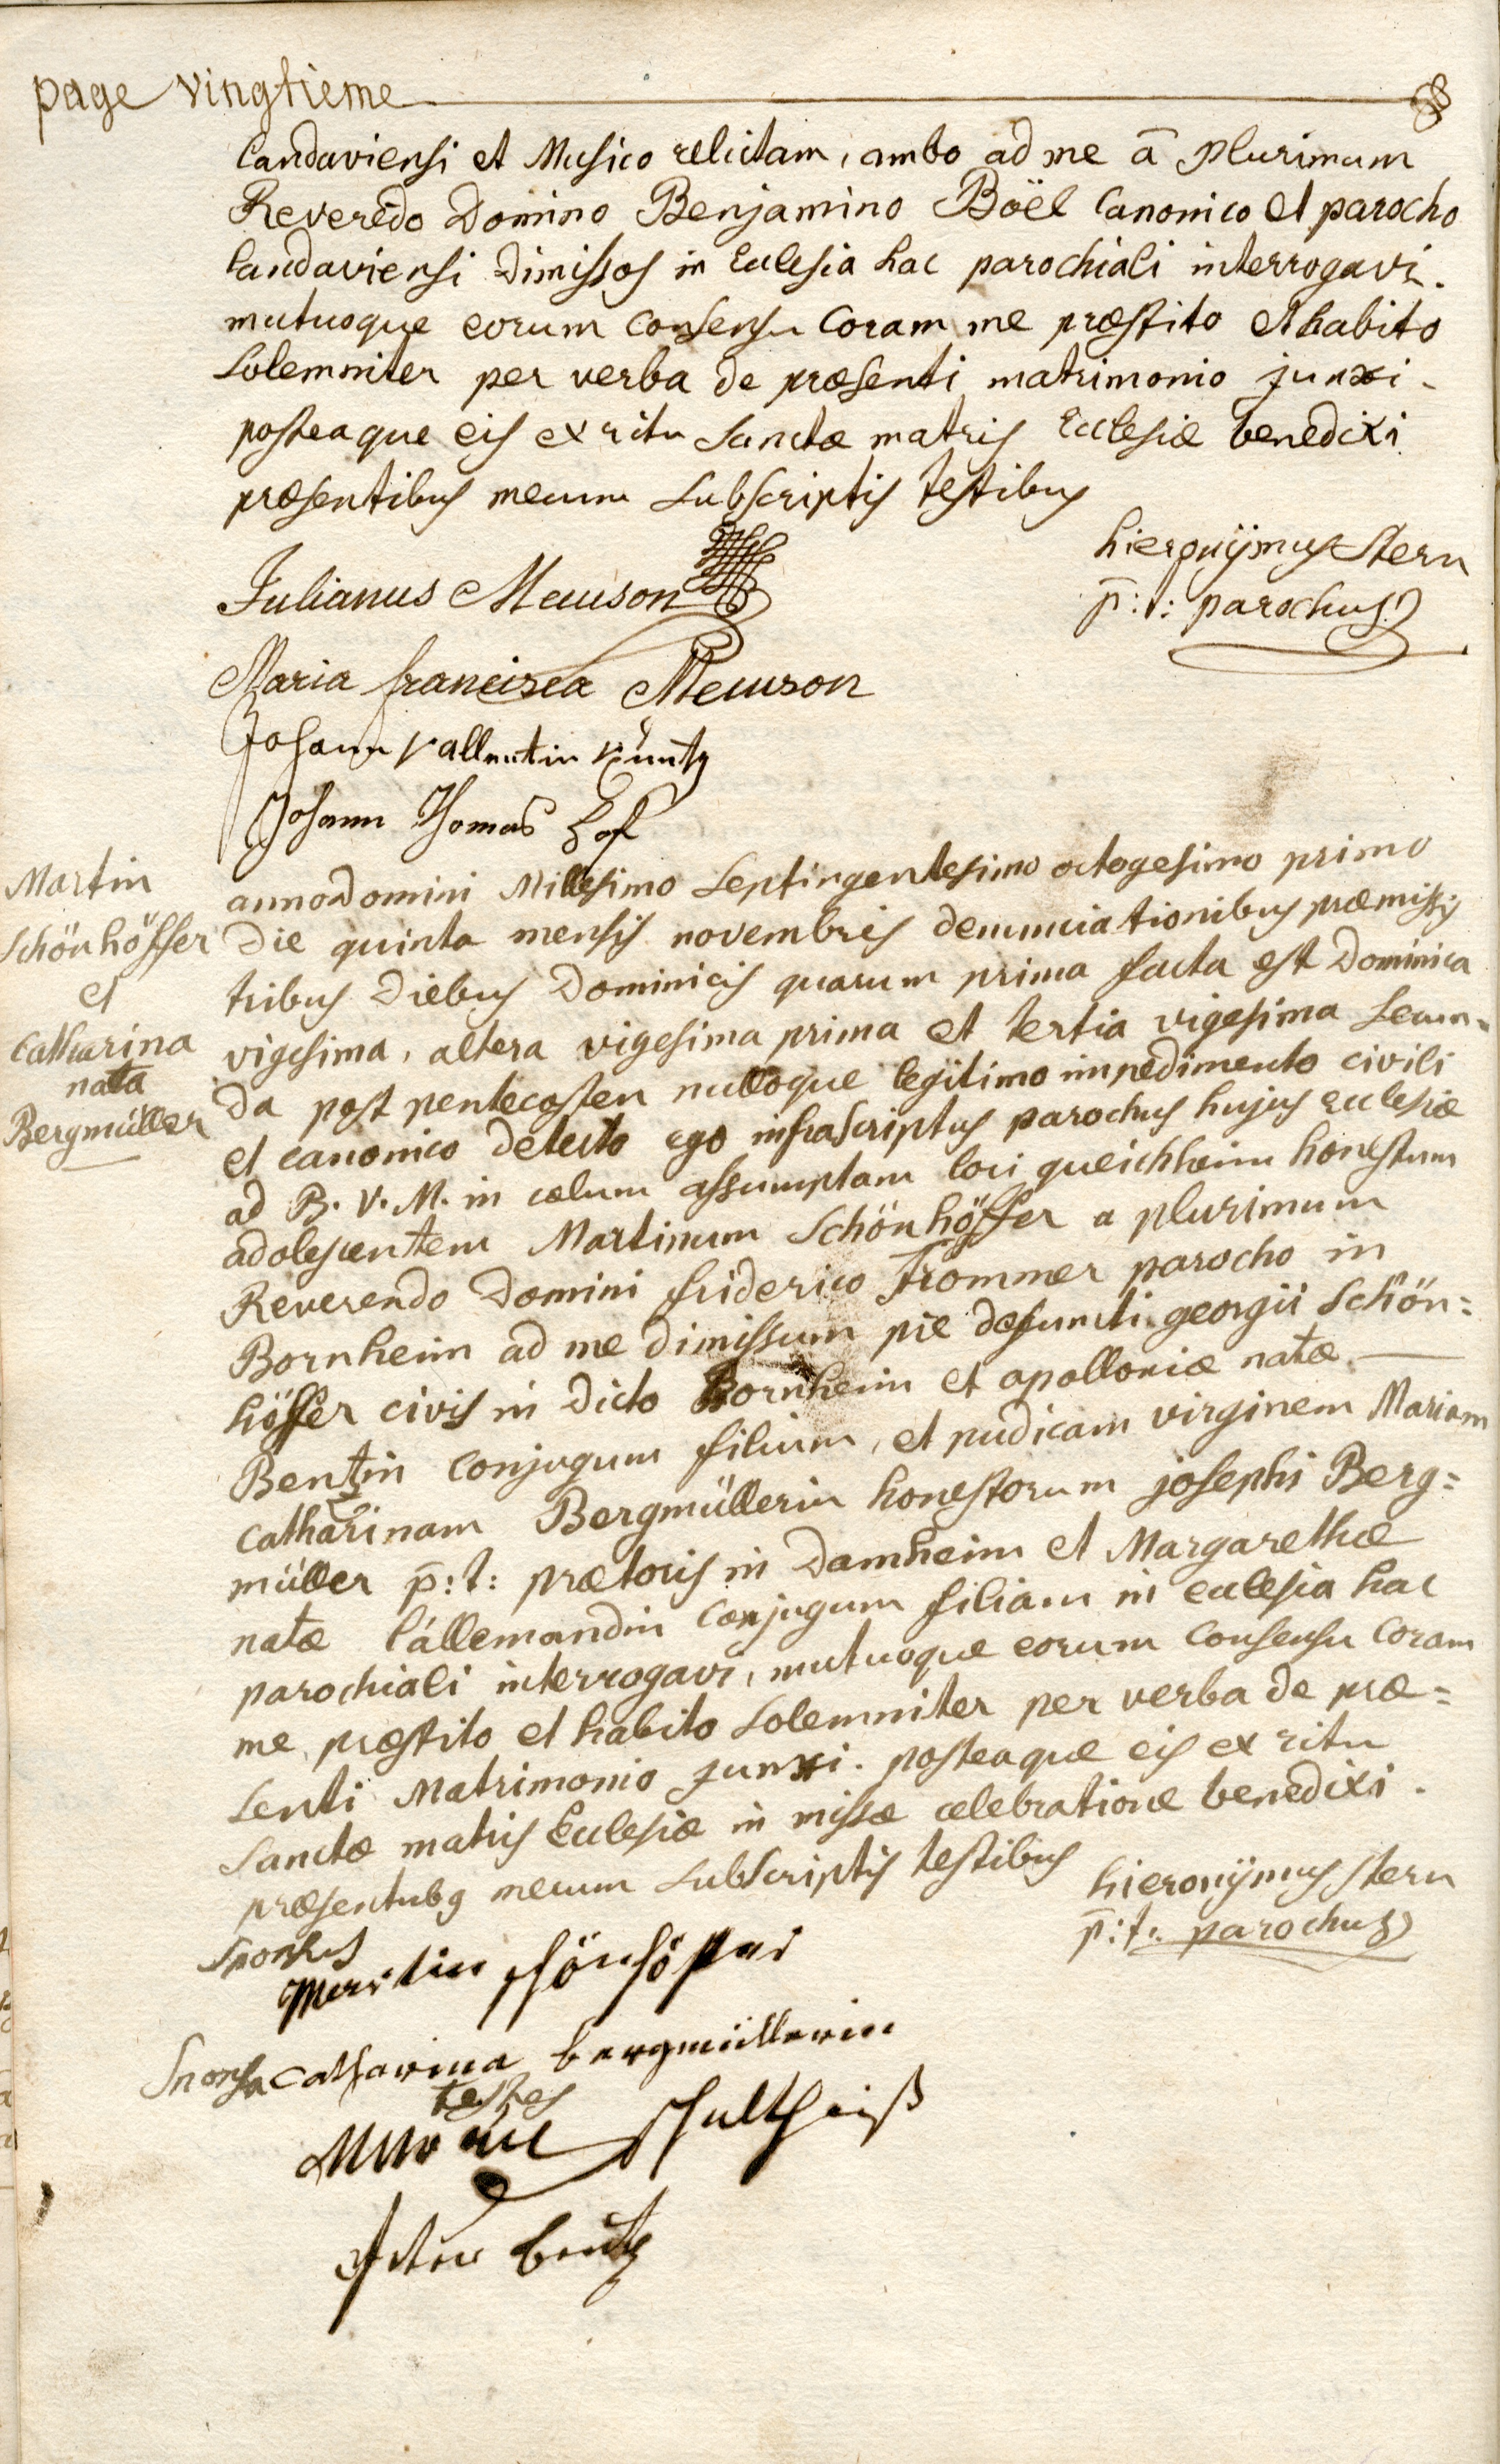 page vingtieme
Landaviensi et Musico relictam, ambo ad me ā plurimum
Reverēdo Domino Benjamino Boël Canonico et parocho
Landaviensi dimissos in Ecclesia hac parochiali interrogavi.
mutuoque eorum Consensu Coram me præstito et habito
Solemniter per verba de præsenti matrimonio junxi.
posteaque eis ex ritu Sanctæ matris Ecclesiæ benedixi
præsentibus mecum Subscriptis testibus
hieronÿmus Stern
p̄:t: parochus
Julianus Meuson
Maria francisca Meuson
Johann Vallentin Küntz
Johann Thomas
Martin
Schönhöffer
et
Catharina
nata
Bergmüller
anno Domini Millesimo Septingentesimo octogesimo primo
Die quinta mensis novembris denunciationibus præmissis
tribus diebus Dominicis quarum prima facta est Dominica
vigesima, altera vigesima prima et tertia vigesima Secun=
da post pentecosten nulloque legitimo impedimento civili
et canonico detecto ego infrascriptus parochus hujus ecclesiæ
ad B. V. M. in cœlum assumptam loci queichheim honestum
adolescentem Martinum Schönhöffer a plurimum
Reverendo Domini friderico Frommer parocho in
Bornheim ad me dimissum pie defuncti georgii Schön=
höffer civis in dicto Bornheim et apolloniæ natæ
Bentzin Conjugum filium, et pudicam virginem Mariam
Catharinam Bergmüllerin honestorum josephi Berg=
müller p̄:t: prætoris in Damheim et Margarethæ
natæ l'allemandin Conjugum filiam in ecclesia hac
parochiali interrogavi, mutuoque eorum Consensu Coram
me præstito et habito Solemniter per verba de præ=
senti Matrimonio junxi. posteaque eis ex ritu
Sanctæ matris Ecclesiæ in missæ celebratione benedixi.
præsentubq mecum Subscriptis testibus
hieronÿmus Stern
p̄:t: parochus
Sponsus
Martin schönhöffer
Sponsa Catharina bergmüllerin
testes
schultheiß
bentz